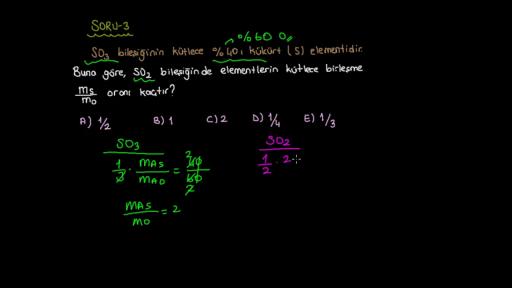 SORU-3
%60 O
SO3 bileşiğinin kütlece %40'ı kükürt (S) elementidir.
Buna göre, SO2 bileşiğinde elementlerin kütlece birleşme
ms/mo oranı kaçtır?
A) 1/2 B) 1 C) 2 D) 1/4 E) 1/3
SO3 SO2
1/3 · MAS/MAO = 40/60 2 1/2 · 2
MAS/MO = 2